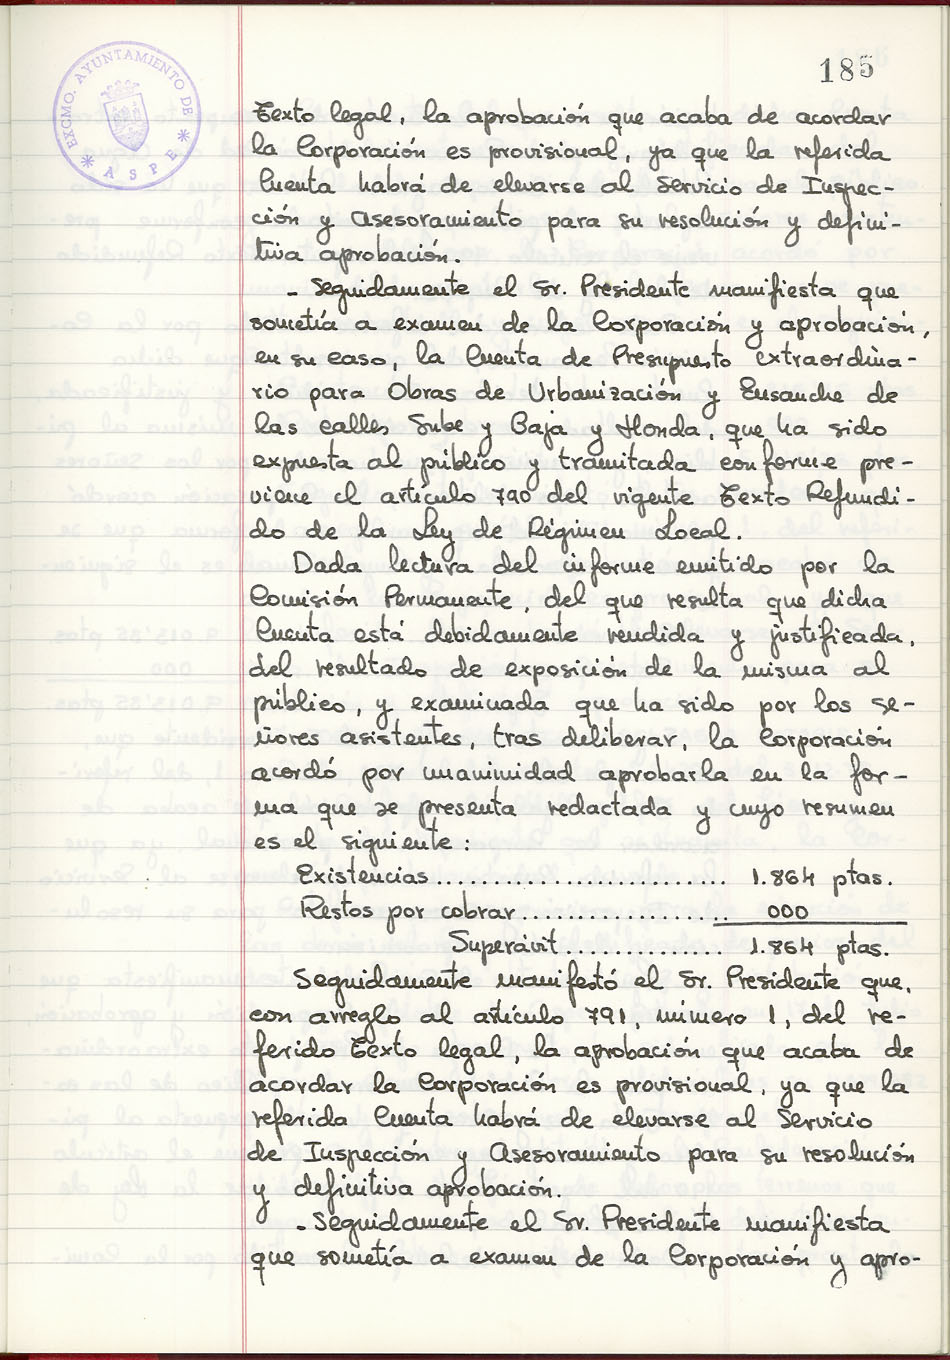 185
EXCMO. AYUNTAMIENTO DE
* ASPE *
Texto legal, la aprobación que acaba de acordar
la Corporación es provisional, ya que la referida
Cuenta habrá de elevarse al Servicio de Inspec-
ción y Asesoramiento para su resolución y defini-
tiva aprobación.
- Seguidamente el Sr. Presidente manifiesta que
sometía a examen de la Corporación y aprobación,
en su caso, la Cuenta de Presupuesto extraordina-
rio para Obras de Urbanización y Ensanche de
las calles Sube y Baja y Honda, que ha sido
expuesta al público y tramitada conforme pre-
viene el artículo 790 del vigente Texto Refundi-
do de la Ley de Régimen Local.
Dada lectura del informe emitido por la
Comisión Permanente, del que resulta que dicha
Cuenta está debidamente rendida y justificada,
del resultado de exposición de la misma al
público, y examinada que ha sido por los se-
ñores asistentes, tras deliberar, la Corporación
acordó por unanimidad aprobarla en la for-
ma que se presenta redactada y cuyo resumen
es el siguiente:
Existencias........................... 1.864 ptas.
Restos por cobrar.................... 000
Superávit............... 1.864 ptas.
Seguidamente manifestó el Sr. Presidente que,
con arreglo al artículo 791, número 1, del re-
ferido Texto legal, la aprobación que acaba de
acordar la Corporación es provisional, ya que la
referida Cuenta habrá de elevarse al Servicio
de Inspección y Asesoramiento para su resolución
y definitiva aprobación.
- Seguidamente el Sr. Presidente manifiesta
que sometía a examen de la Corporación y apro-